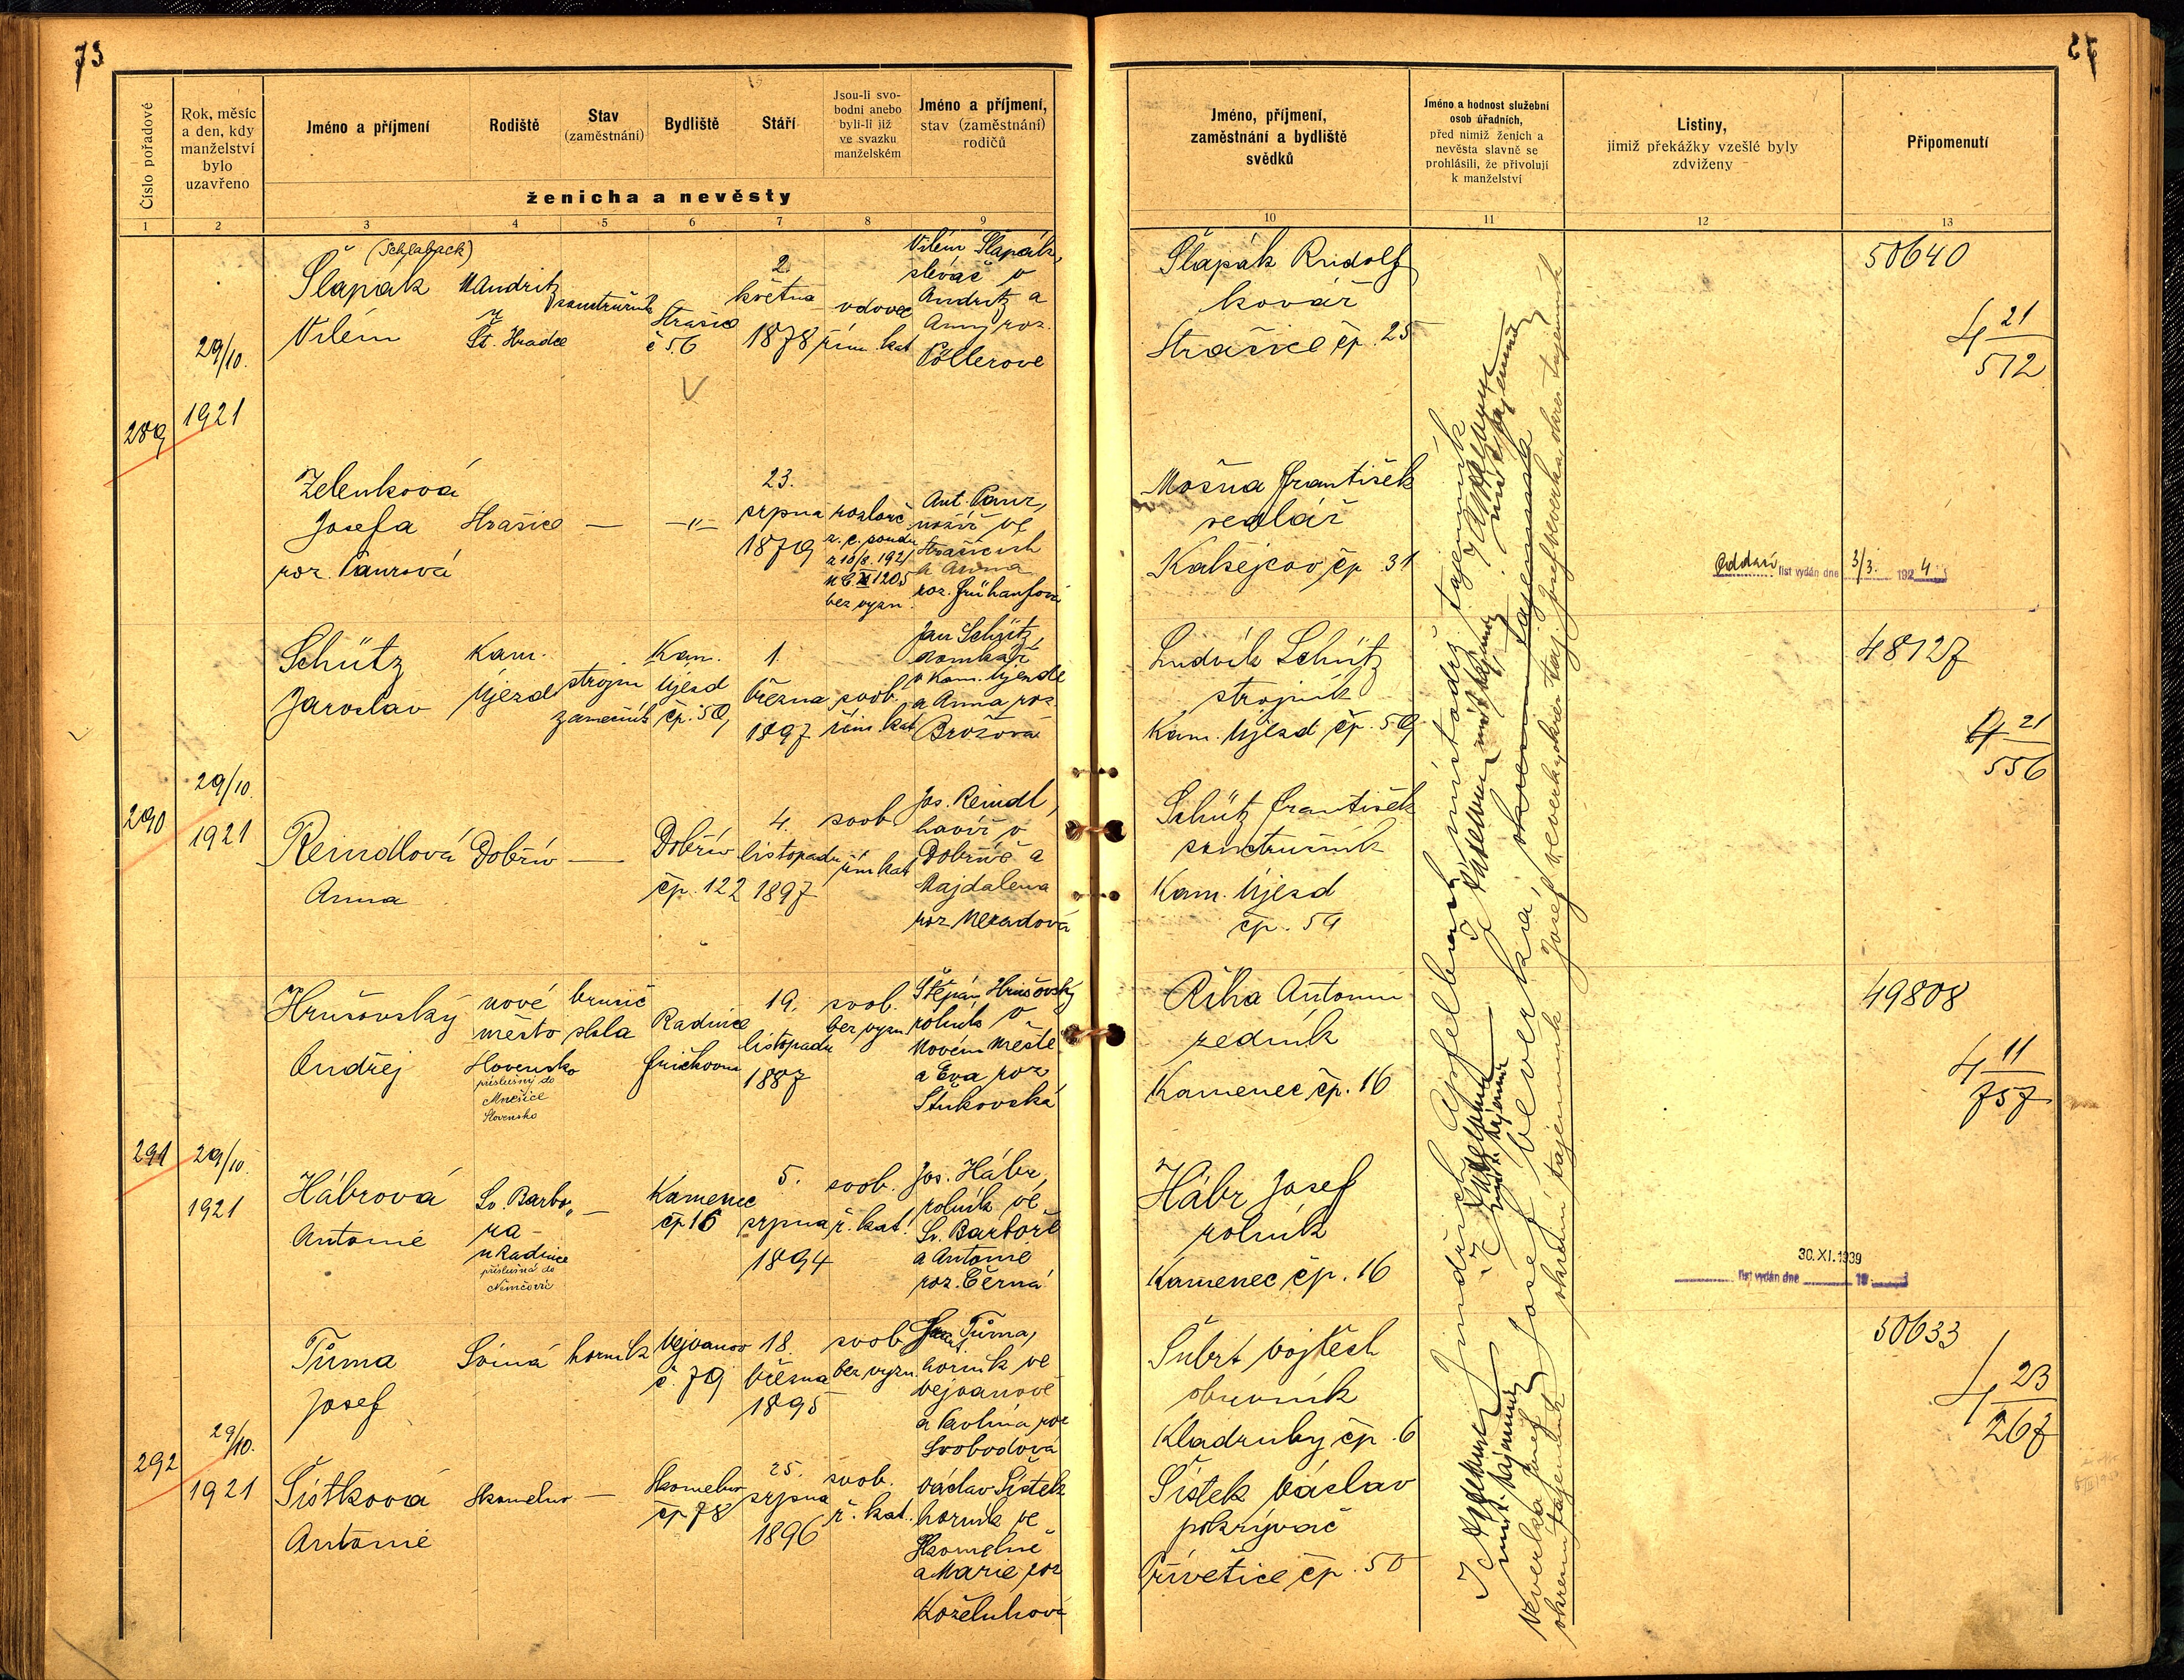 73
Číslo pořadové
Rok, měsíc
a den, kdy
manželství
bylo
uzavřeno
Jméno a příjmení
Rodiště
Stav
(zaměstnání)
Bydliště
Stáří
Jsou-li svo-
bodni anebo
byli-li již
ve svazku
manželském
Jméno a příjmení,
stav (zaměstnání)
rodičů
ženicha a nevěsty
1 2 3 4 5 6 7 8 9
289
29/10.
1921
(Schlaback)
Šlapák
Vilém
Andritz
u
Št. Hradce
Strašice
č 56
2.
května
1878
vdovec
řím. kat
Vilém Šlapák,
slévač v
Andritz a
Anny roz.
Pöllerové
Zelenková
Josefa
roz. Panrová
Strašice
—
—"—
23.
srpna
1879
rozlouč
bez vyzn.
Ant. Panr,
ve
Strašicích
a Anna
roz. Frühaufová
290
29/10.
1921
Schütz
Jaroslav
Kam.
Újezd
strojní
zámečník
Kam.
Újezd
čp. 59
1.
března
1897
svob.
řím. kat
Jan Schütz,
domkář
v Kam. Újezdě
a Anna roz
Brožová
Reindlová
Anna
Dobřív
—
Dobřív
čp. 122
4.
listopadu
1897
svob
řím kat
Jos. Reindl,
havíř v
Dobřívě a
Majdalena
roz Neradová
291
29/10.
1921
Hrušovský
Ondřej
nové
město
Slovensko
příslušný do
Mnešice
Slovensko
brusič
skla
Radnice
19.
listopadu
1887
svob.
bez vyzn.
Štěpán Hrušovský
rolník v
Novém Městě
a Eva roz
Hábrová
Antonie
Sv. Barbo„
ra
u Radnice
příslušná do
Němčovic
—
Kamenec
čp 16
5.
srpna
1894
svob.
ř. kat.
Jos. Hábr,
rolník ve
Sv. Barboře
a Antonie
roz. Černá
292
29/10.
1921
Tůma
Josef
Sviná
horník
Vejvanov
č. 79
18.
března
1895
svob
bez vyzn.
Tůma,
horník ve
Vejvanově
a Pavlína roz
Svobodová
Šístková
Antonie
Skomelno
—
Skomelno
čp 78
25.
srpna
1896
svob.
ř. kat.
Václav Šístek
horník ve
Skomelně
a Marie roz
Koželuhová
Jméno, příjmení,
zaměstnání a bydliště
svědků
Jméno a hodnost služební
osob úřadních,
před nimiž ženich a
nevěsta slavně se
prohlásili, že přivolují
k manželství
Listiny,
jimiž překážky vzešlé byly
zdviženy
Připomenutí
10 11 12 13
Šlapák Rudolf
kovář
Strašice čp. 25
50640
4 21
572
Mošna František
sedlář
Kařejcov čp 31
Oddací list vydán dne 3/3. 1924
Ludvík Schütz
strojník
Kam. Újezd čp. 59
48127
21
556
Schütz František
soustružník
Kam. Újezd
čp. 59
Říha Antonín
řezník
Kamenec čp. 16
49808
4 11
757
Hábr Josef
rolník
Kamenec čp. 16
30.XI.1939
list vydán dne 19
Šubrt Vojtěch
obuvník
Kladruby čp. 6
50633
4 23
267
Šístek Václav
pokrývač
Přívětice čp. 50
Jindřich Apfelbeck, místodrž. tajemník
Josef Veverka, okresní tajemník